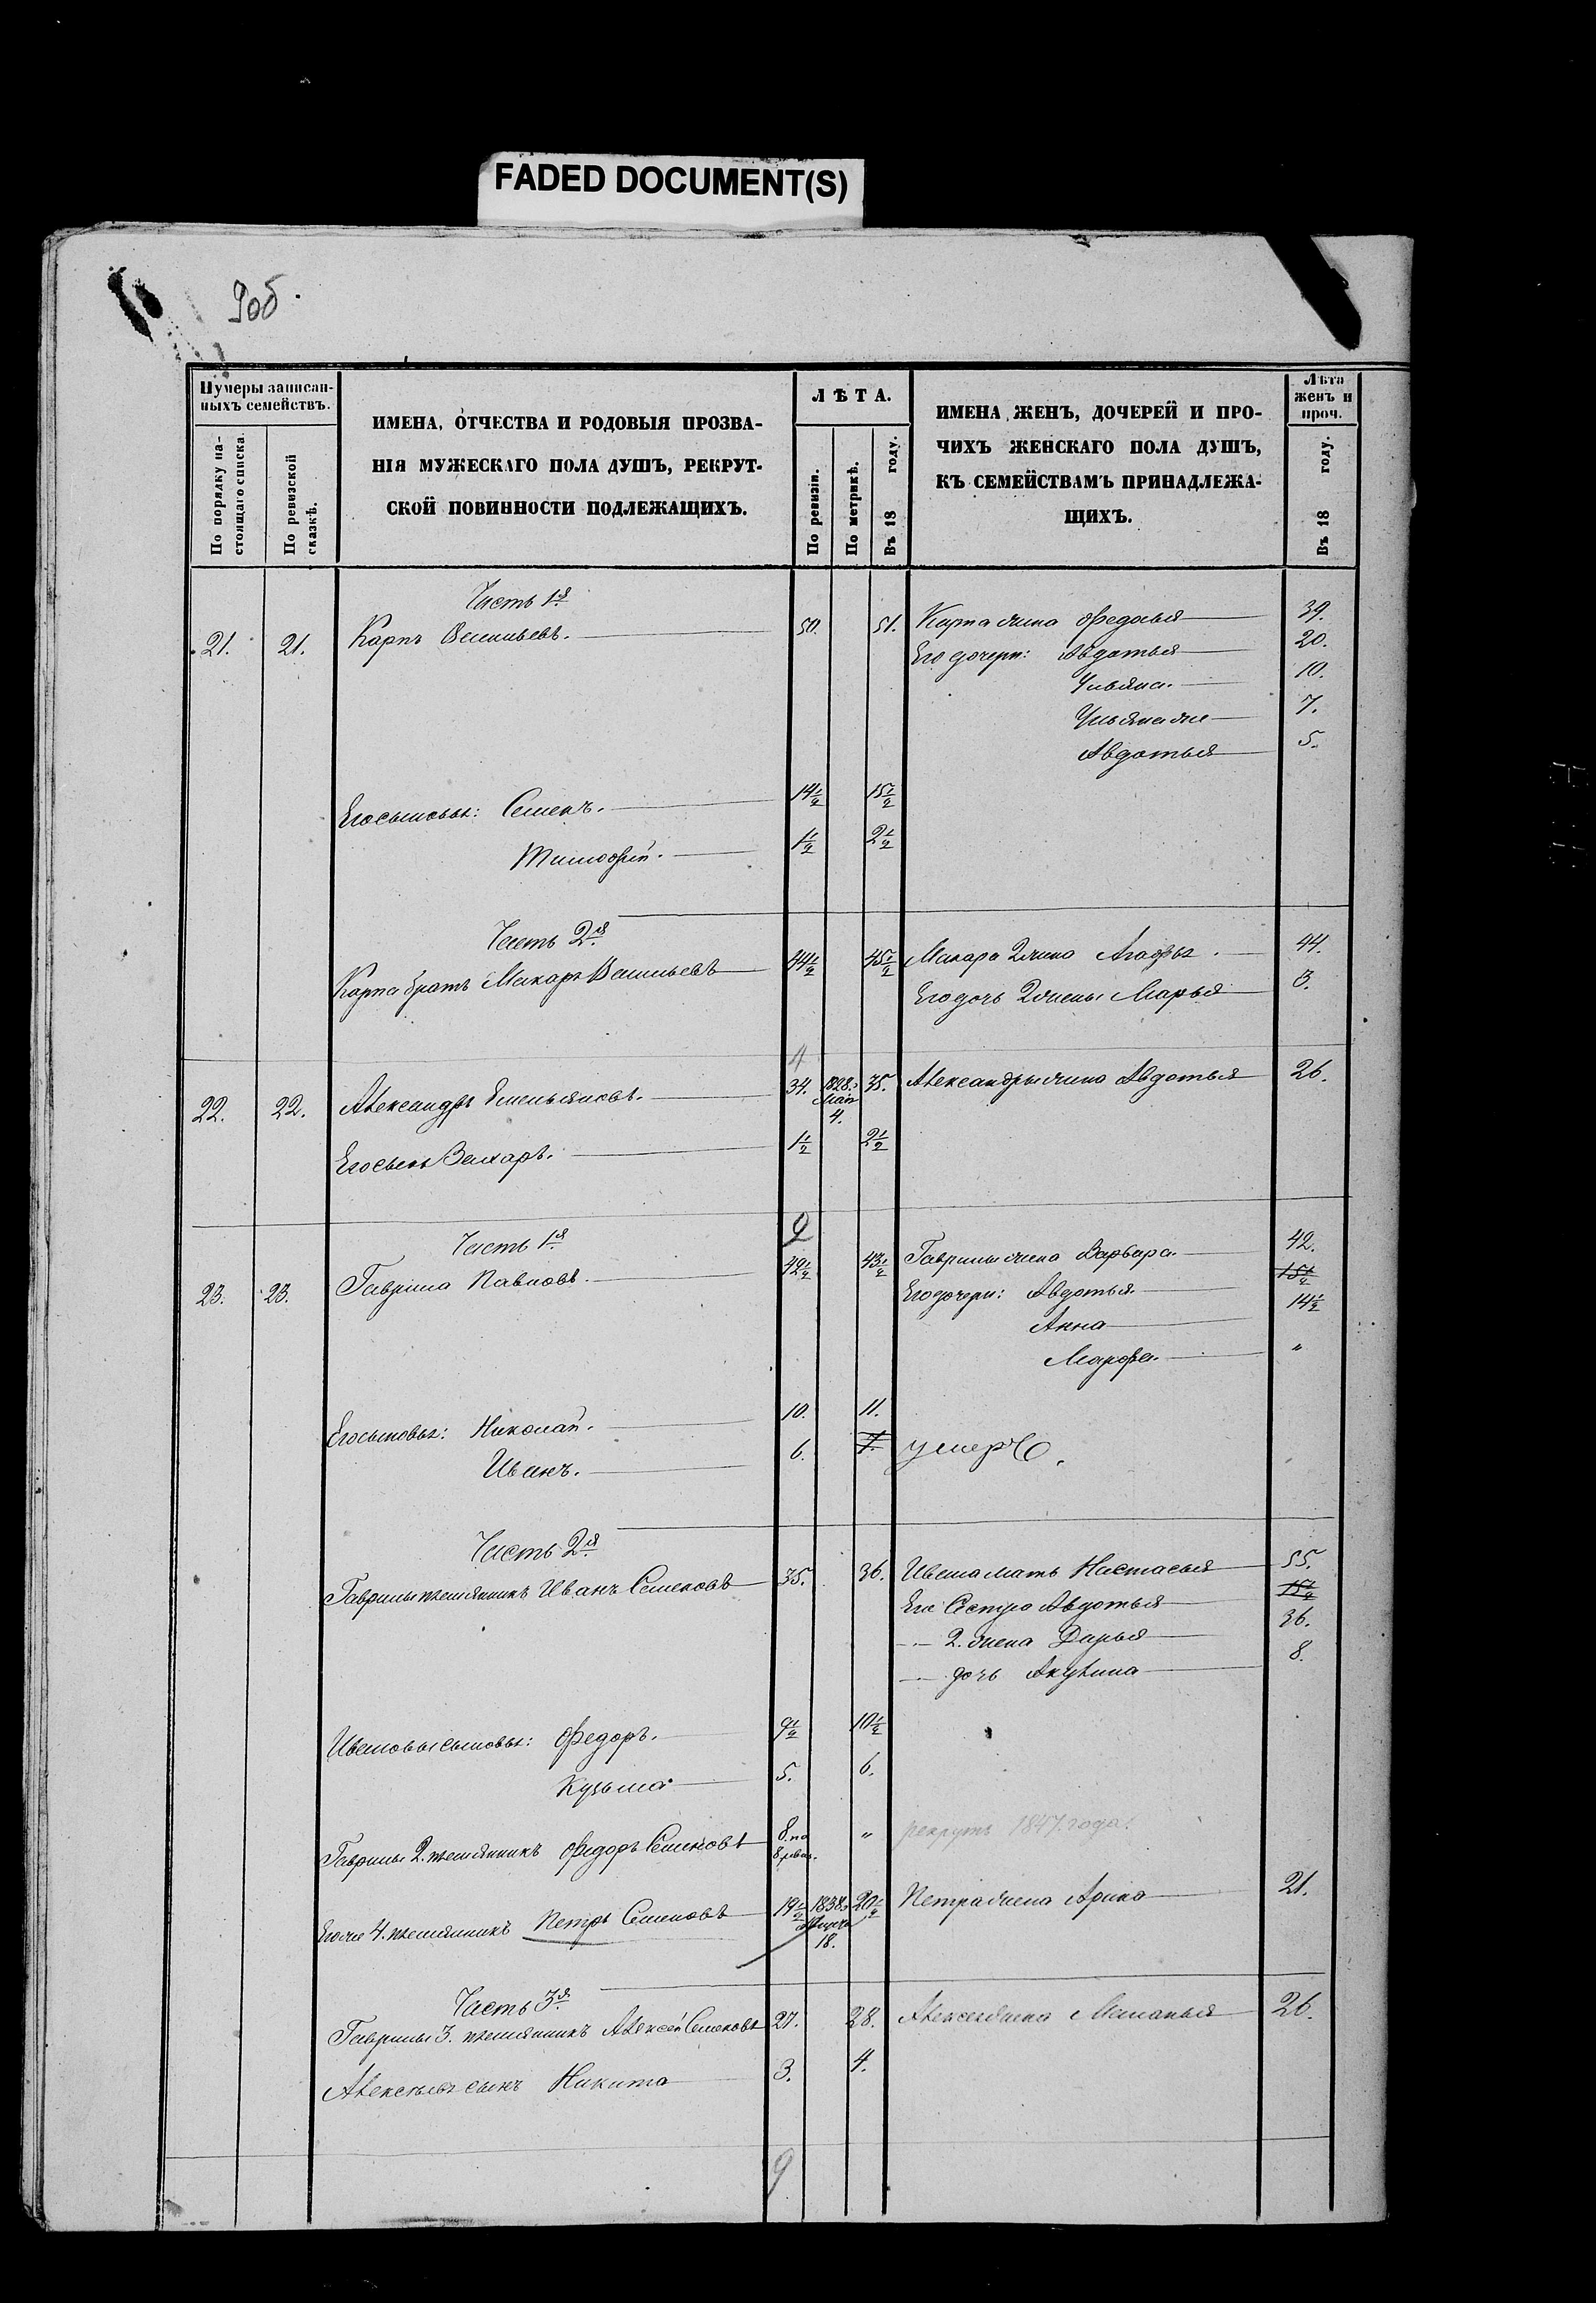 FADED DOCUMENT(S)
9об.
Нумеры записан-
ныхъ семействъ.
По порядку на-
стоящаго списка.
По ревизской
сказкѣ.
ИМЕНА, ОТЧЕСТВА И РОДОВЫЯ ПРОЗВА-
НІЯ МУЖЕСКАГО ПОЛА ДУШЪ, РЕКРУТ-
СКОЙ ПОВИННОСТИ ПОДЛЕЖАЩИХЪ.
ЛѢТА.
По ревизіи.
По метрикѣ.
Въ 18 году.
ИМЕНА ЖЕНЪ, ДОЧЕРЕЙ И ПРО-
ЧИХЪ ЖЕНСКАГО ПОЛА ДУШЪ,
КЪ СЕМЕЙСТВАМЪ ПРИНАДЛЕЖА-
ЩИХЪ.
Лѣта
женъ и
проч.
Въ 18 году.
Часть 1я
21. 21. Карпъ Васильевъ. 50. 51. Карпа жена Федосья 39.
Его дочери: Авдотья 20.
Ульяна. 10.
Ульяна же 7.
Авдотья 5.
Его сыновья: Семенъ. 14½ 15½
Тимофей. 1½ 2½
Часть 2я
Карпа братъ Макаръ Васильевъ 44½ 45½ Макара 2 жена Агафья. 44.
Его дочь 2 жены Марья 3.
4
22. 22. Александръ Емельяновъ. 34. 1828. Мая 4. 35. Александры жена Авдотья 26.
Его сынъ Захаръ. 1½ 2½
2
Часть 1я
23. 23. Гаврила Павловъ. 42½ 43½ Гаврилы жена Варвара. 42.
Его дочери: Авдотья. 15½
Анна 14½
Марфа. "
Его сыновья: Николай. 10. 11.
Иванъ. 6. 7. умеръ.
Часть 2я
Гаврилы племянникъ Иванъ Семеновъ 35. 36. Ивана мать Настасья 55.
Его Сестра Авдотья 15½
-"- 2. жена Дарья 36.
-"- дочь Акулина 8.
Ивановы сыновья: Федоръ. 9½ 10½
Кузьма 5. 6.
Гаврилы 2. племянникъ Федоръ Семеновъ 8. по 8 ревиз. " рекрутъ 1847. года.
Его же 4. племянникъ Петръ Семеновъ 19½ 1838. 18. 20½ Петра жена Арина 21.
Часть 3я
Гаврилы 3. племянникъ Алексей Семеновъ 27. 28. Алексея жена Маланья 26.
Алексѣевъ сынъ Никита 3. 4.
9